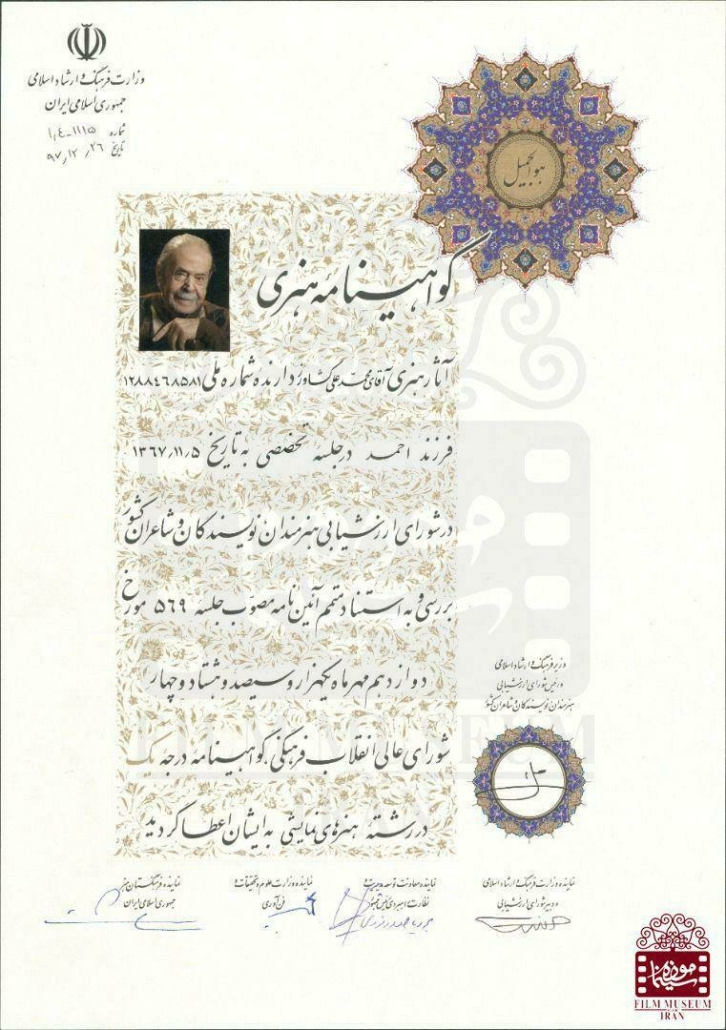 وزارت فرهنگ و ارشاد اسلامی
جمهوری اسلامی ایران
شماره ۱٫۴-۱۱۱۵
تاریخ ۹۷٫۱۲٫۲۶
هوالجمیل
گواهینامه هنری
آثار هنری آقای محمدعلی کشاورز دارنده شماره ملی ۱۲۸۸۴۶۸۵۸۱
فرزند احمد در جلسه تخصصی به تاریخ ۱۳۶۷٫۱۱٫۵
در شورای ارزشیابی هنرمندان نویسندگان و شاعران کشور
بررسی و به استناد متمم آئین نامه مصوب جلسه ۵۶۹ مورخ
دوازدهم مهرماه یکهزار و سیصد و هشتاد و چهار
شورای عالی انقلاب فرهنگی گواهینامه درجه یک
در رشته هنرهای نمایشی به ایشان اعطا گردید
وزیر فرهنگ و ارشاد اسلامی
و رئیس شورای ارزشیابی
هنرمندان نویسندگان و شاعران کشور
نماینده وزارت فرهنگ و ارشاد اسلامی
و دبیر شورای ارزشیابی
نماینده معاونت توسعه مدیریت و
نظارت راهبردی رئیس جمهور
نماینده وزارت علوم و تحقیقات و
فن آوری
نماینده فرهنگستان هنر
جمهوری اسلامی ایران
FILM MUSEUM
IRAN
موزه سینما
FILM MUSEUM
IRAN